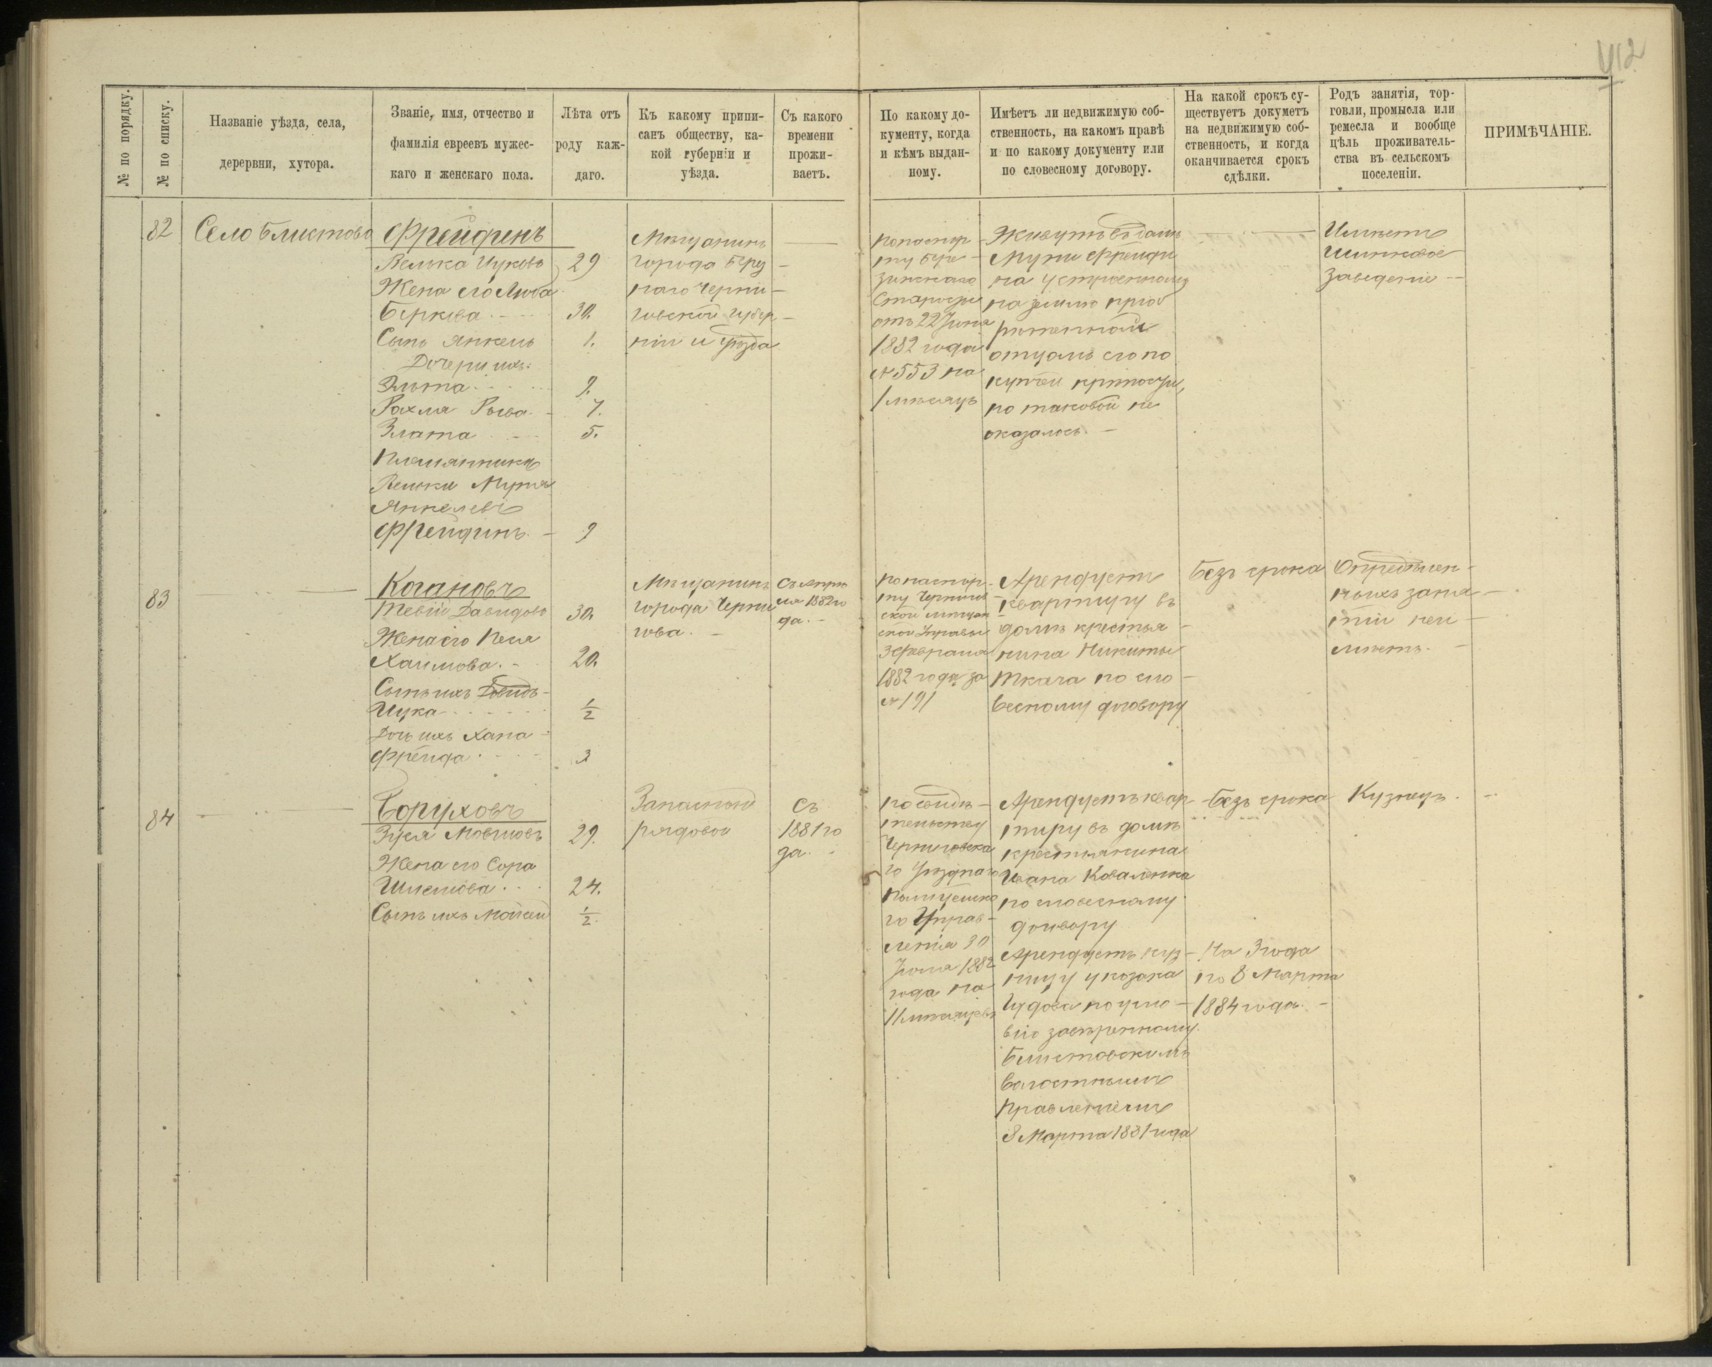 412
№ по порядку.
№ по списку.
Названіе уѣзда, села,
дерервни, хутора.
Званіе, имя, отчество и
фамилія евреевъ мужес-
каго и женскаго пола.
Лѣта отъ
роду каж-
даго.
Къ какому припи-
санъ обществу, ка-
кой губерніи и
уѣзда.
Съ какого
времени
прожи-
ваетъ.
По какому до-
кументу, когда
и кѣмъ выдан-
ному.
Имѣетъ ли недвижимую соб-
ственность, на какомъ правѣ
и по какому документу или
по словесному договору.
На какой срокъ су-
ществуетъ докуметъ
на недвижимую соб-
ственность, и когда
оканчивается срокъ
сдѣлки.
Родъ занятія, тор-
говли, промысла или
ремесла и вообще
цѣль проживатель-
ства въ сельскомъ
поселеніи.
ПРИМѢЧАНІЕ.
82
Село Блистово
Фрейдинъ
Велька Ицковъ 29
Жена его Люба
Беркова 30.
Сынъ Янкель 1.
Дочери ихъ:
Эльта 9.
Рахля Рыва 7.
Злата 5.
Племянникъ
Вельки Мупя
Янкелевъ
Фрейдинъ 9
Мѣщанинъ
города Берез
наго Черни
говской губер
ніи и уѣзда
по паспор
ту Бере
зинскаго
Старосты
отъ 22 Іюня
1882 года
№ 553 на
1 мѣсяцъ
Живутъ въ домѣ
Мупи Фрейди
на устроенному
на землѣ приоб
рѣтенной
отцомъ его по
купчей крѣпости,
но таковой не
оказалось.
Имѣетъ
Шинковое
заведеніе
83
Когановъ
Тевій Давидовъ 30.
Жена его Песя
Хаимова. 20.
Сынъ ихъ
Ицка 1/2
Дочь ихъ Хана
Фрейда 3
Мѣщанинъ
города Черни
гова.
Съ апрѣ
ля 1882 го
да.
по паспор
ту Чернигов
ской мѣщан
ской Управы
3 февраля
1882 года за
№ 191
Арендуетъ
квартиру въ
домѣ крестья
нина Никиты
Ткача по сло
весному договору
Безъ срока
Опредѣлен-
ныхъ заня
тій неи
мѣетъ.
84
Боруховъ
Зуся Мовшовъ 29.
Жена его Сора
Шлемова 24.
Сынъ ихъ Мойсей 1/2
Запасный
рядовой
Съ
1881 го
да.
по свидѣ
тельству
Черниговска
го Уѣзднаго
Полицейска
го Управ
ленія 30
Іюня 1882
года на
11 мѣсяцевъ
Арендуетъ квар
тиру въ домѣ
крестьянина
Ивана Коваленка
по словесному
договору
Арендуетъ куз
ницу у козака
Гудова по усло
вію засвѣренному
Блистовскимъ
Волостнымъ
Правленіемъ
8 Марта 1881 года
Безъ срока
На 3 года
по 8 Марта
1884 года.
Кузнецъ.